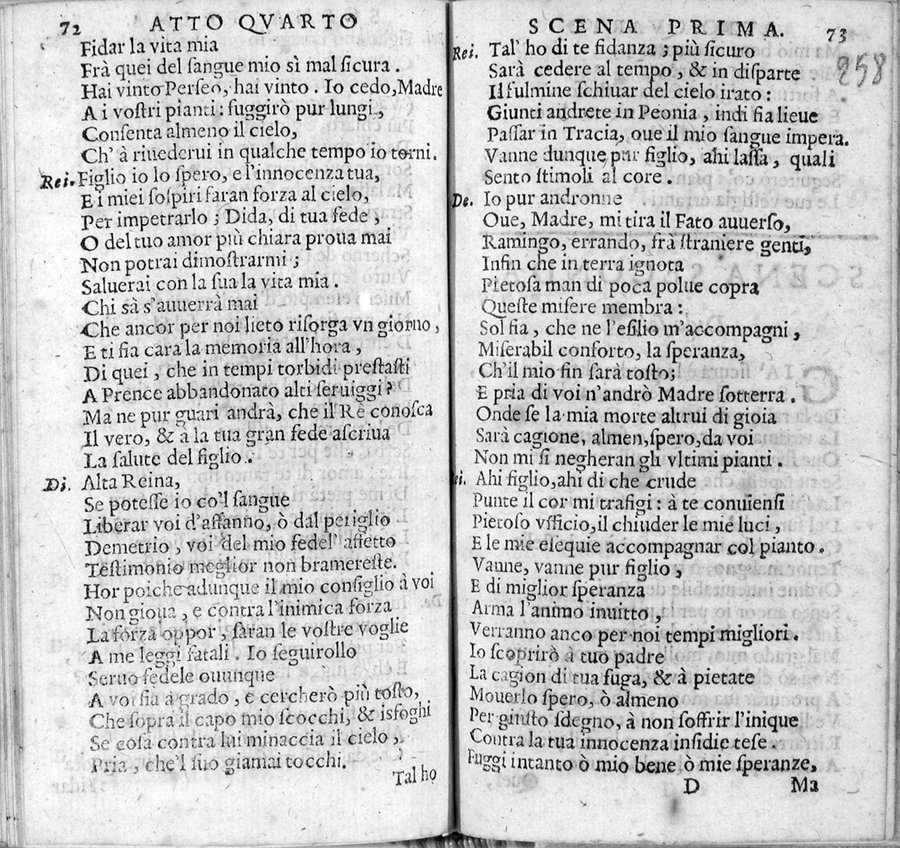 72 ATTO QVARTO
Fidar la vita mia
Frà quei del sangue mio sì mal sicura.
Hai vinto Perseo, hai vinto. Io cedo, Madre
A i vostri pianti: fuggirò pur lungi,
Consenta almeno il cielo,
Ch' à riuederui in qualche tempo io torni.
Rei. Figlio io lo spero, e l'innocenza tua,
E i miei sospiri faran forza al cielo,
Per impetrarlo; Dida, di tua fede,
O del tuo amor più chiara proua mai
Non potrai dimostrarmi;
Saluerai con la sua la vita mia.
Chi sà s'auuerrà mai
Che ancor per noi lieto risorga vn giorno,
E ti sia cara la memoria all'hora,
Di quei, che in tempi torbidi prestasti
A Prence abbandonato alti seruiggi?
Ma ne pur guari andrà, che il Rè conosca
Il vero, & à la tua gran fede ascriua
La salute del figlio.
Di. Alta Reina,
Se potesse io co'l sangue
Liberar voi d'affanno, ò dal periglio
Demetrio, voi del mio fedel' affetto
Testimonio meglior non bramereste.
Hor poiche adunque il mio consiglio à voi
Non gioua, e contra l'inimica forza
La forza oppor, saran le vostre voglie
A me leggi fatali. Io seguirollo
Seruo fedele ouunque
A voi sia à grado, e cercherò più tosto,
Che sopra il capo mio scocchi, & isfoghi
Se cosa contra lui minaccia il cielo,
Pria, che'l suo giamai tocchi.
Tal ho
SCENA PRIMA. 73
258
Rei. Tal' ho di te fidanza; più sicuro
Sarà cedere al tempo, & in disparte
Il fulmine schiuar del cielo irato:
Giunti andrete in Peonia, indi fia lieue
Passar in Tracia, oue il mio sangue impera.
Vanne dunque pur figlio, ahi lassa, quali
Sento stimoli al core.
De. Io pur andronne
Oue, Madre, mi tira il Fato auuerso,
Ramingo, errando, frà straniere genti,
Infin che in terra ignota
Pietosa man di poca polue copra
Queste misere membra:
Sol fia, che ne l'esilio m'accompagni,
Miserabil conforto, la speranza,
Ch'il mio fin sarà tosto;
E pria di voi n'andrò Madre sotterra.
Onde se la mia morte altrui di gioia
Sarà cagione, almen, spero, da voi
Non mi si negheran gli vltimi pianti.
ei. Ahi figlio, ahi di che crude
Punte il cor mi trafigi: à te conuiensi
Pietoso vfficio, il chiuder le mie luci,
E le mie esequie accompagnar col pianto.
Vanne, vanne pur figlio,
E di miglior speranza
Arma l'animo inuitto,
Verranno anco per noi tempi migliori.
Io scoprirò à tuo padre
La cagion di tua fuga, & à pietate
Mouerlo spero, ò almeno
Per giusto sdegno, à non soffrir l'inique
Contra la tua innocenza insidie tese.
Fuggi intanto ò mio bene ò mie speranze,
D Ma